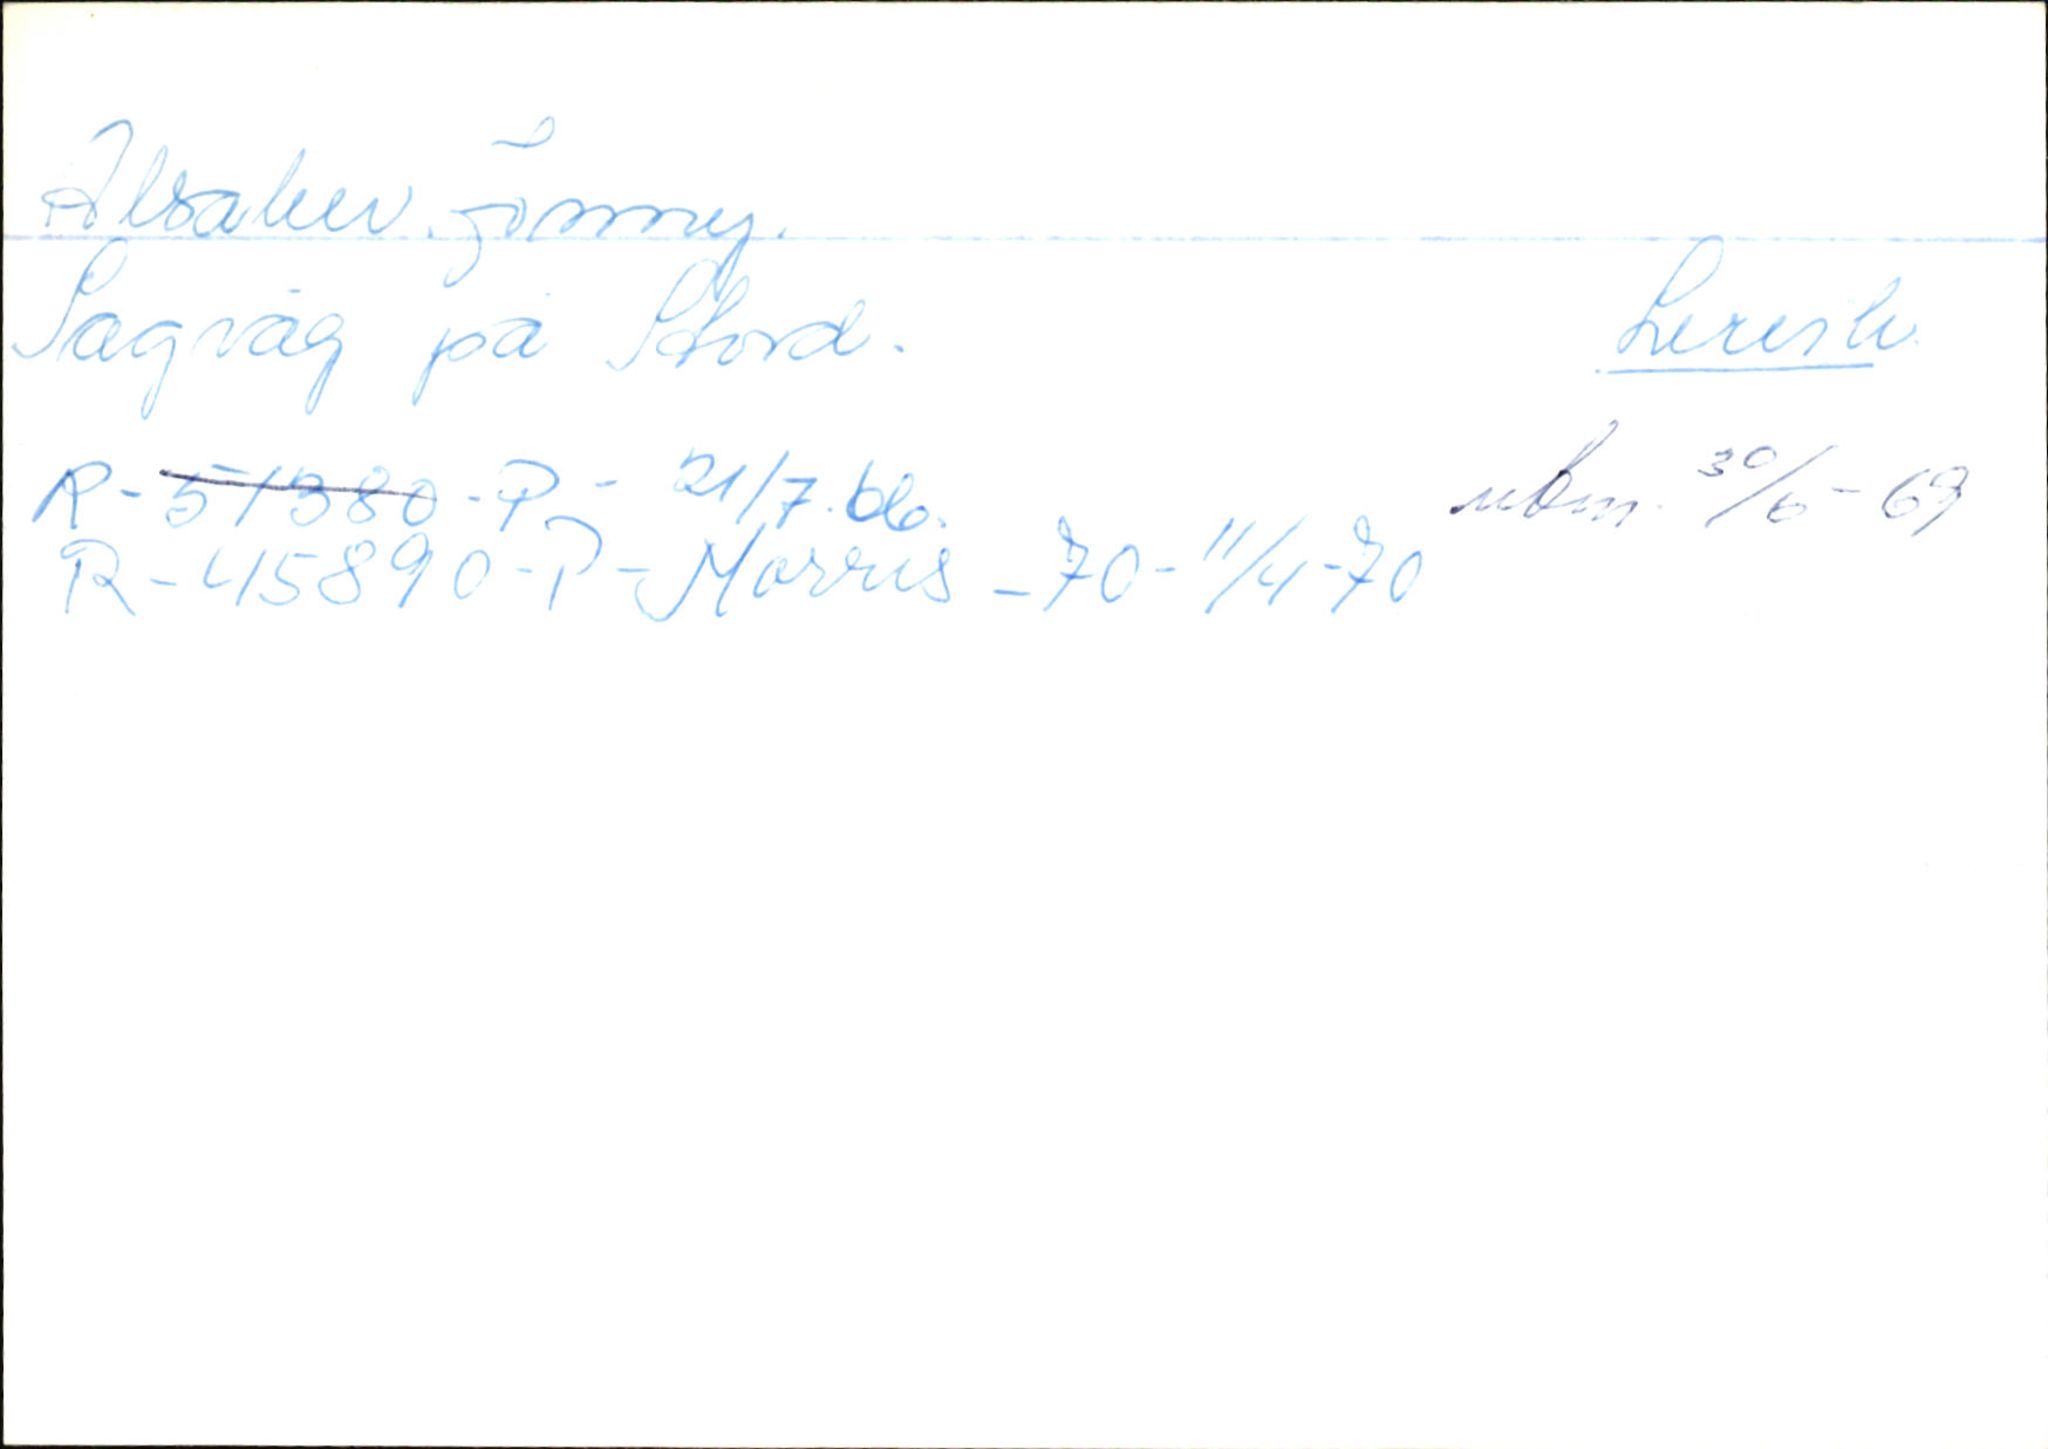 Alsaker. Jonny.
Sagvåg på Stord.
Lervik.
R-51380-P- 21/7.66.
utm. 30/6-69
R-45890-P-Morris-70-11/4-70